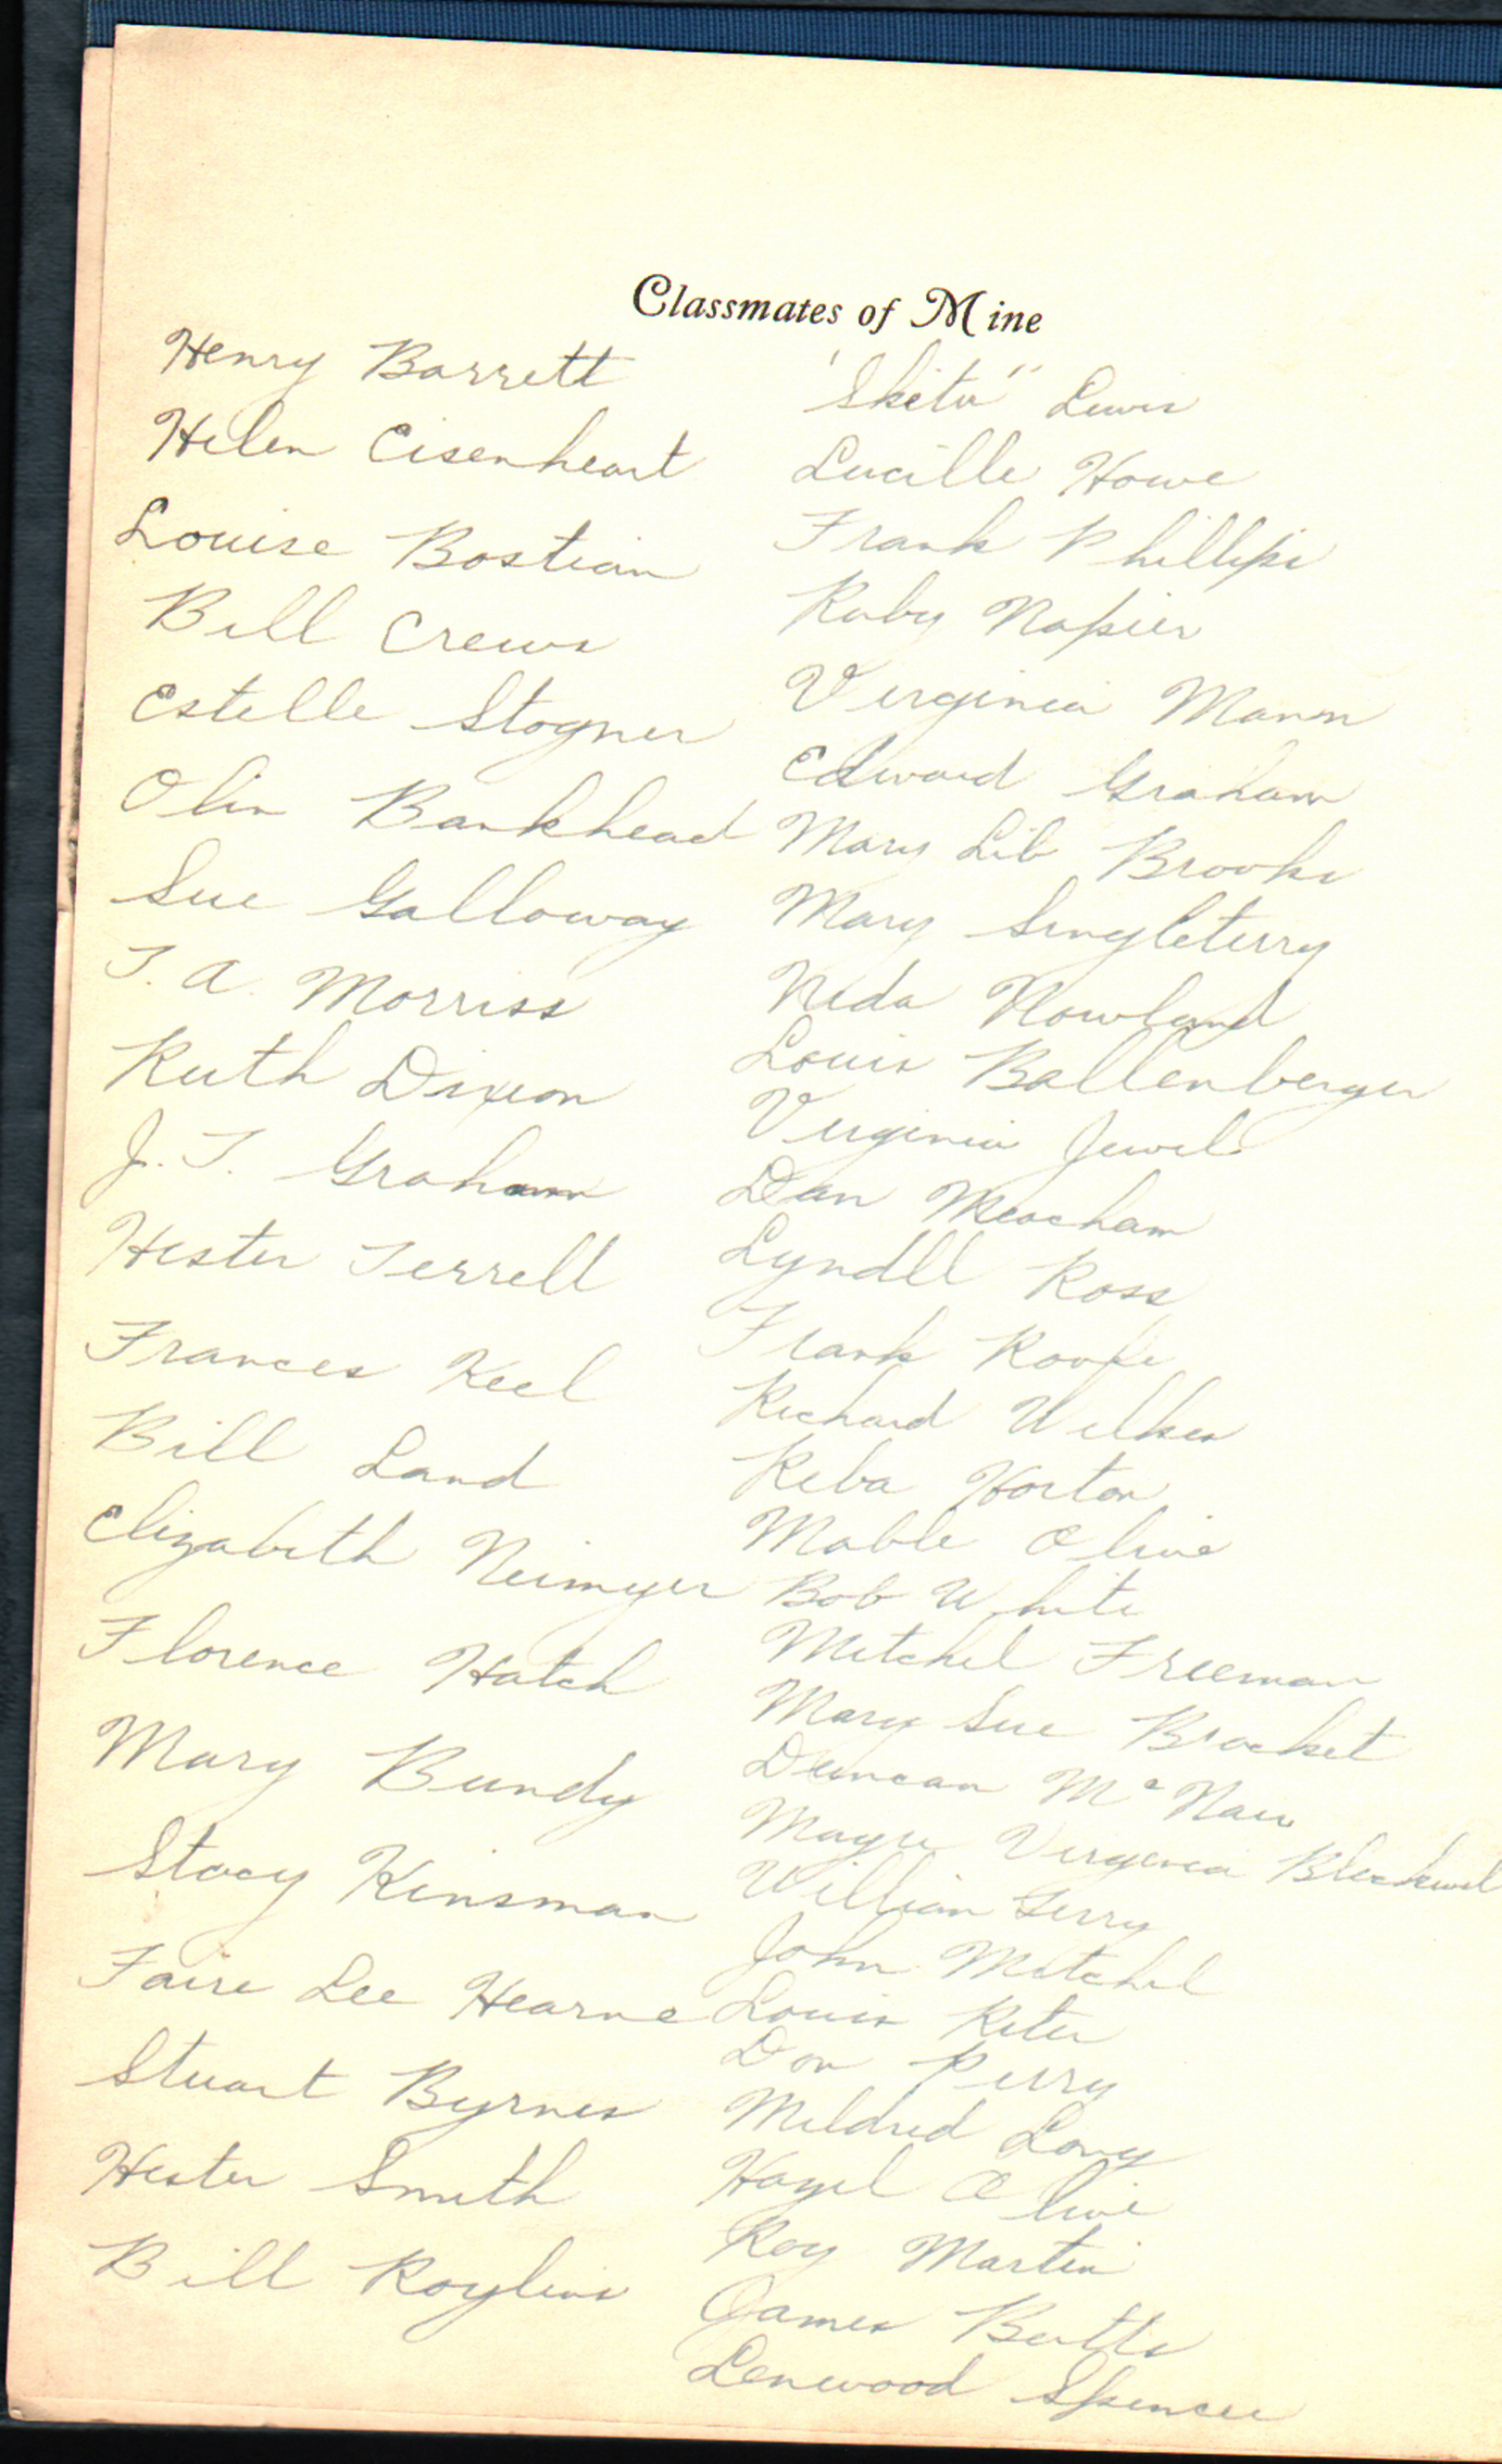 Classmates of Mine
Henry Barrett
Helen Eisenheart
Louise Bostian
Bill Crews
Estelle Stogner
Olin Bankhead
Sue Galloway
T. A. Morriss
Ruth Dixon
J. T. Graham
Hester Terrell
Frances Keel
Bill Land
Elizabeth Neimyer
Florence Hatch
Mary Bundy
Stacy Kinsman
Faire Lee Hearne
Stuart Byrnes
Hester Smith
Bill
"Sketer" Lewis
Lucille Howe
Frank Phillips
Ruby Napier
Virginia Mann
Edward Graham
Mary Lib Brooks
Mary Singleterry
Neda Nowland
Louis Ballenberger
Virginia Jewel
Dan Meacham
Lyndll Ross
Frank
Richard Wilkes
Reba Horton
Mable Olive
Bob White
Mitchel Freeman
Mary Sue Bracket
Duncan
Virginia
William Terry
John Mitchel
Louis
Don Perry
Mildred Long
Hazel Olive
Roy Martin
James Butts
Lenwood Spencer